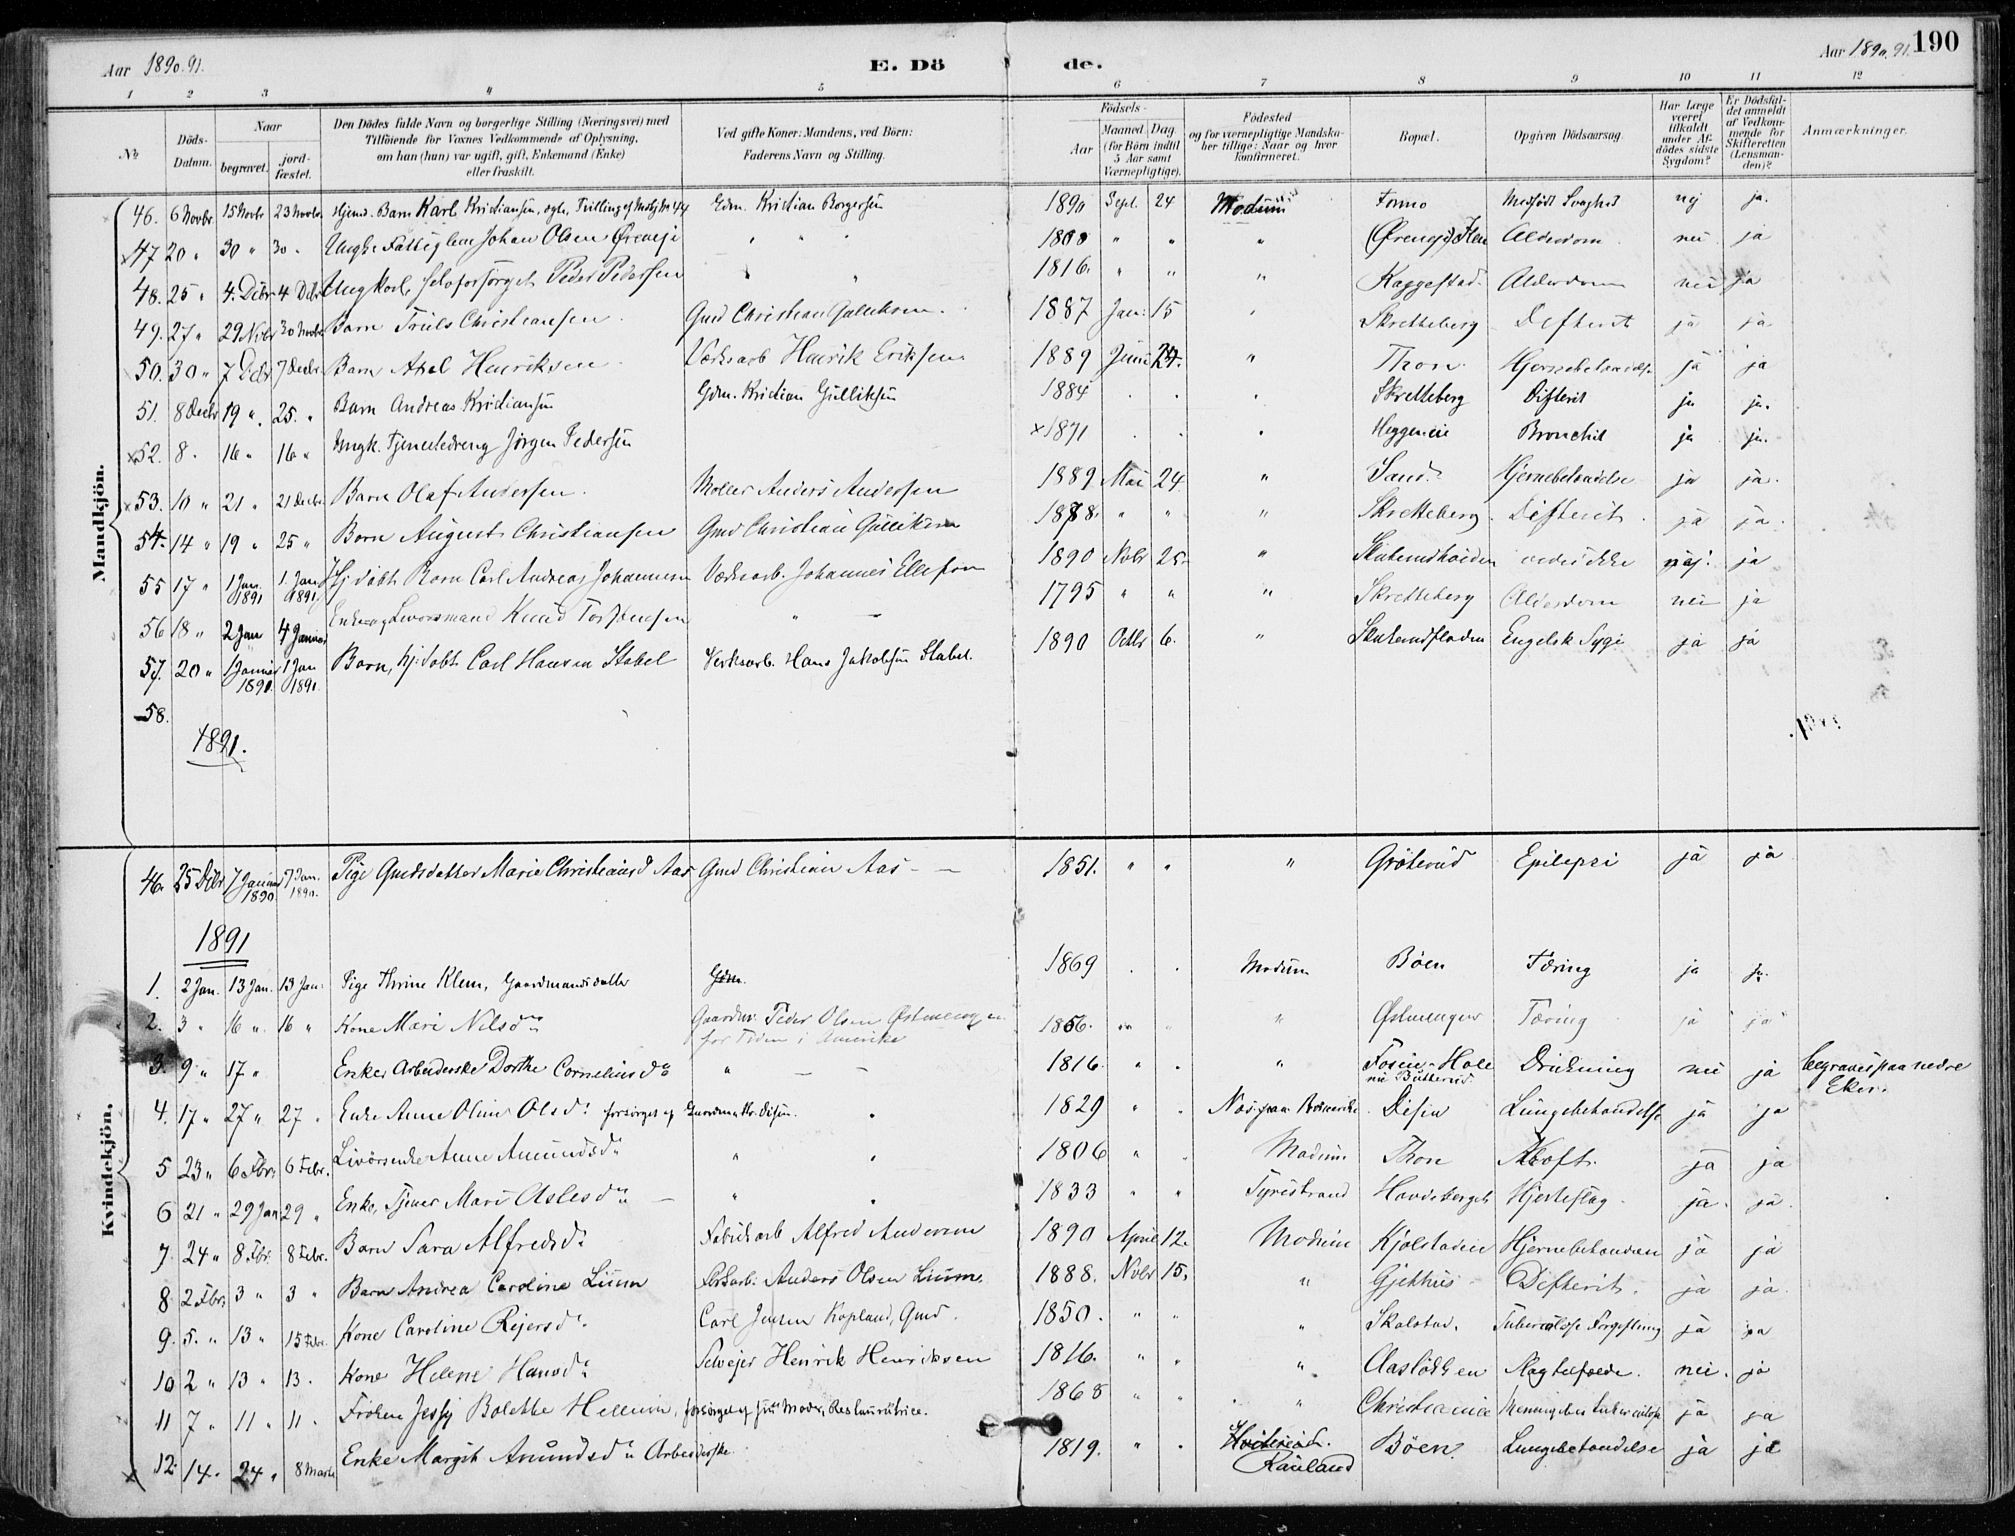 Aar 1890.91.
E. Dö de.
Aar 1890.91. 190
1 2 3 4 5 6 7 8 9 10 11 12
No
Döds-Datum.
Naar
begravet.
jord-fæstet.
Den Dödes fulde Navn og borgerlige Stilling (Næringsvei) med
Tilföiende for Voxnes Vedkommende af Oplysning,
om han (hun) var ugift, gift, Enkemand (Enke)
eller fraskilt.
Ved gifte Koner: Mandens, ved Börn:
Faderens Navn og Stilling.
Födsels-
Aar
Maaned Dag
(for Börn indtil
5 Aar samt
Værnepligtige).
Födested
og for værnepligtige Mandska-
ber tillige: Naar og hvor
konfirmeret.
Bopæl.
Opgiven Dödsaarsag.
Har Læge
været
tilkaldt
under Af-
dödes sidste
Sygdom?
Er Dödsfal-
det anmeldt
af Vedkom-
mende for
Skifteretten
(Lensman-
den)?
Anmærkninger.
Mandkjön.
46. 6 Novbr 15 Novbr 23 Novbr Hjemd. Barn Karl Kristiansen, ægte, Tvilling Gdm. Kristian Borgersen 1890 Sept. 24 Modum Formo Medfødt Svaghed nej ja.
47 20 " 30 " 30 " Ungk. Fattiglem Johan Olsen Øreneje " " 1808 " " " (Øreneje) Alderdom nei ja
48. 25 " 4. Debr 4 Debr Ungkarl, selvforsørget Peder Pedersen " " 1816. " " " Kaggestad Alderdom nei ja
49. 27 " 29 Novbr 30 Novbr Barn Truls Christiansen Gmd Christian Gulliksen. 1887 Jan: 15 " Skretteberg Difterit ja ja
50. 30 " 7 Debr 7 Decbr Barn Axel Henriksen Værksarb Henrik Eriksen 1889 Juni 24. " Thon. Hjernebetændelse ja ja
51. 8 Decbr 19 " 25. " Barn Andreas Kristiansen Gdm. Kristian Gulliksen 1884 . . " Skretteberg Difterit ja ja.
x52. 8 " 16 " 16 " Ungk. Tjenestedreng Jørgen Pedersen x1871 . . " Heggeneie Bronchit ja ja.
x53. 10 " 21 " 21 Decbr. Barn Olaf Andersen. Møller Anders Andersen 1889 Mai 24 " Sand Hjernebetændelse ja ja.
54. 14 " 19 " 25 " Barn August Christiansen Gmd Christian Gulliksen 1878. " " " Skretteberg Difterit ja ja.
55 17 " 1 Jan. 1891 1. Jan 1891 Hj døbt Barn Carl Andreas Johannesen Værksarb. Johannes Ellefsen 1890 Novbr 25 " vedes ikke nej. ja
56 18 " 2 Jan 4 Januar Enke og Livørsmand Knud Torstensen " — 1795 " " " Skretteberg Alderdom nei ja
57. 20 " 1 Januar 1891. 1 Jan 1891. Barn, hj.døbt Carl Hansen Stabel Verksarb. Hans Jakobsen Stabel. 1890 Octbr 6. " Engelsk Syge ja ja
58.
1891.
Kvindekjön.
46. 25 Debr 7 Januar 1890. 7 Jan. 1890. Pige Gmdsdatter Marie Christiansd Aas Gmd Christian Aas — 1851. " " " Grøterud Epilepsi ja ja
1891
1. 2 Jan. 13 Jan. 13 Jan. Pige Thrine Klem, Gaardmandsdatter Gdm. 1869 . . Modum Bøen Tæring ja ja.
2. 3 " 16 " 16 " Kone Mari Nilsd: Gaardm: Peder Olsen Østmengen for Tiden i Amerika 1856. " " " Østmengen Tæring ja ja
3. 9 " 17 " Enke Arbeiderske Dorthe Corneliusd: " — — 1816. " . " Foseie-Hole Drukning nei ja begraves paa nedre Eker.
4. 17 " 27 " 27 . Enke Anne Oline Olsd: forsørget af Gaardm Kr. Disen. " 1829 " . Disen Lungebetændelse ja ja
5 23 " 6 Fbr. 6 Febr. Livørsenke Anne Amundsd: " . 1806 " . Modum Thon Kræft. ja ja
6 21 " 29 Jan 29 " Enke, Tjener Mari Aslesd: — " . 1833 " " Tyristrand Hovdeberget Hjerteslag ja. ja.
7. 24 " 8 Fbr. 8 Febr. Barn Sara Alfredsd: Fabrikarb Alfred Andersen 1890 April 12. Modum Kjølstadeie Hjernebetændelse ja ja
8 2 Fbr. 3 " 3 " Barn Andrea Caroline Lium Anders Olsen Lium. 1888. Novbr 15. " Gjethus Difterit. ja ja.
9. 5. " 13 " 15 Febr. Kone Caroline Reiersd: Carl Jensen Kopland, Gmd. 1850. " " " Skalstad. ja ja
10 2 " 13 " 13. Kone Helene Hansd: Selvejer Henrik Henriksen 1816. " " " Aasløkken Slagtilfælde. nei. ja
11 7 " 11 " 11 . Frøken Jessy Bolette Hellum, forsørget af sin Moder, Restauratrice. 1868 " " . " Christiania ja ja
x 12. 14. 24 " 8 Marts Enke Margit Amundsd: Arbeiderske 1819. " . Hviteseid. Rauland Bøen. Lungebetændelse ja ja